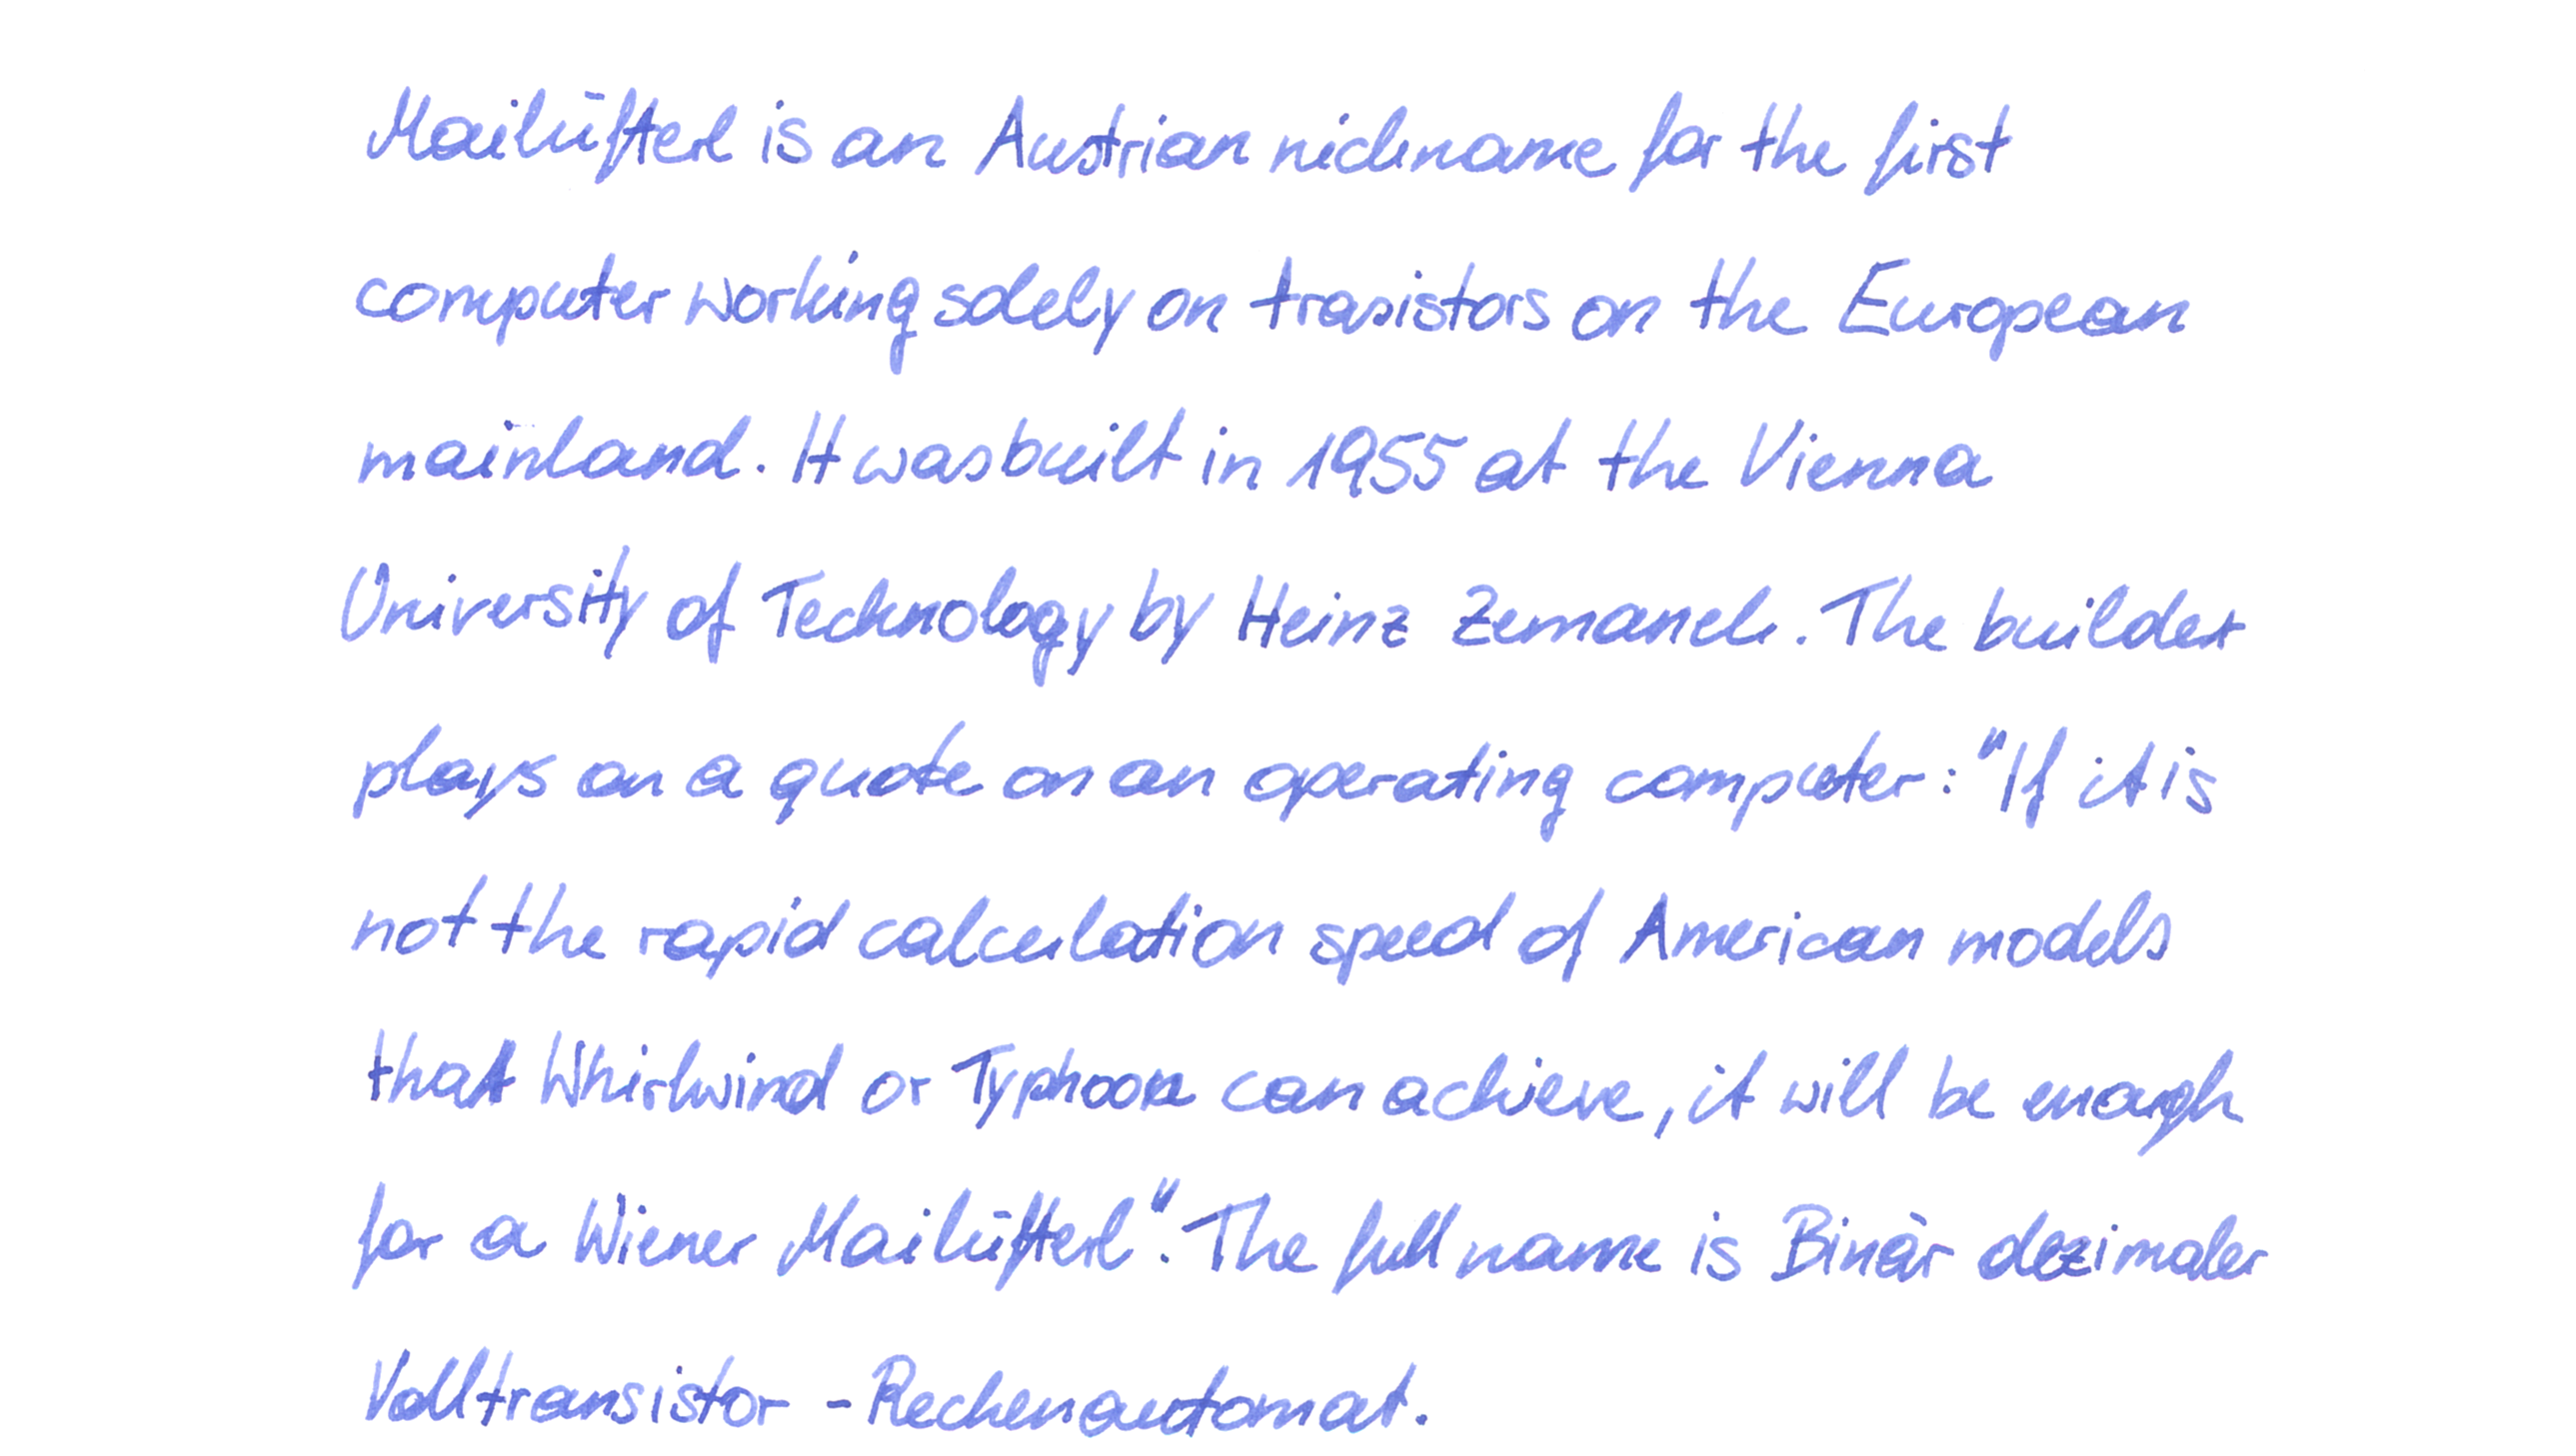 Mailüfterl is an Austrian nickname for the first
computer working solely on trasistors on the European
mainland. It was built in 1955 at the Vienna
University of Technology by Heinz Zemanek. The builder
plays on a quote on an operating computer: "If it is
not the rapid calculation speed of American models
that Whirlwind or Typhoon can achieve, it will be enough
for a Wiener Mailüfterl". The full name is Binär dezimaler
Volltransistor - Rechenautomat.